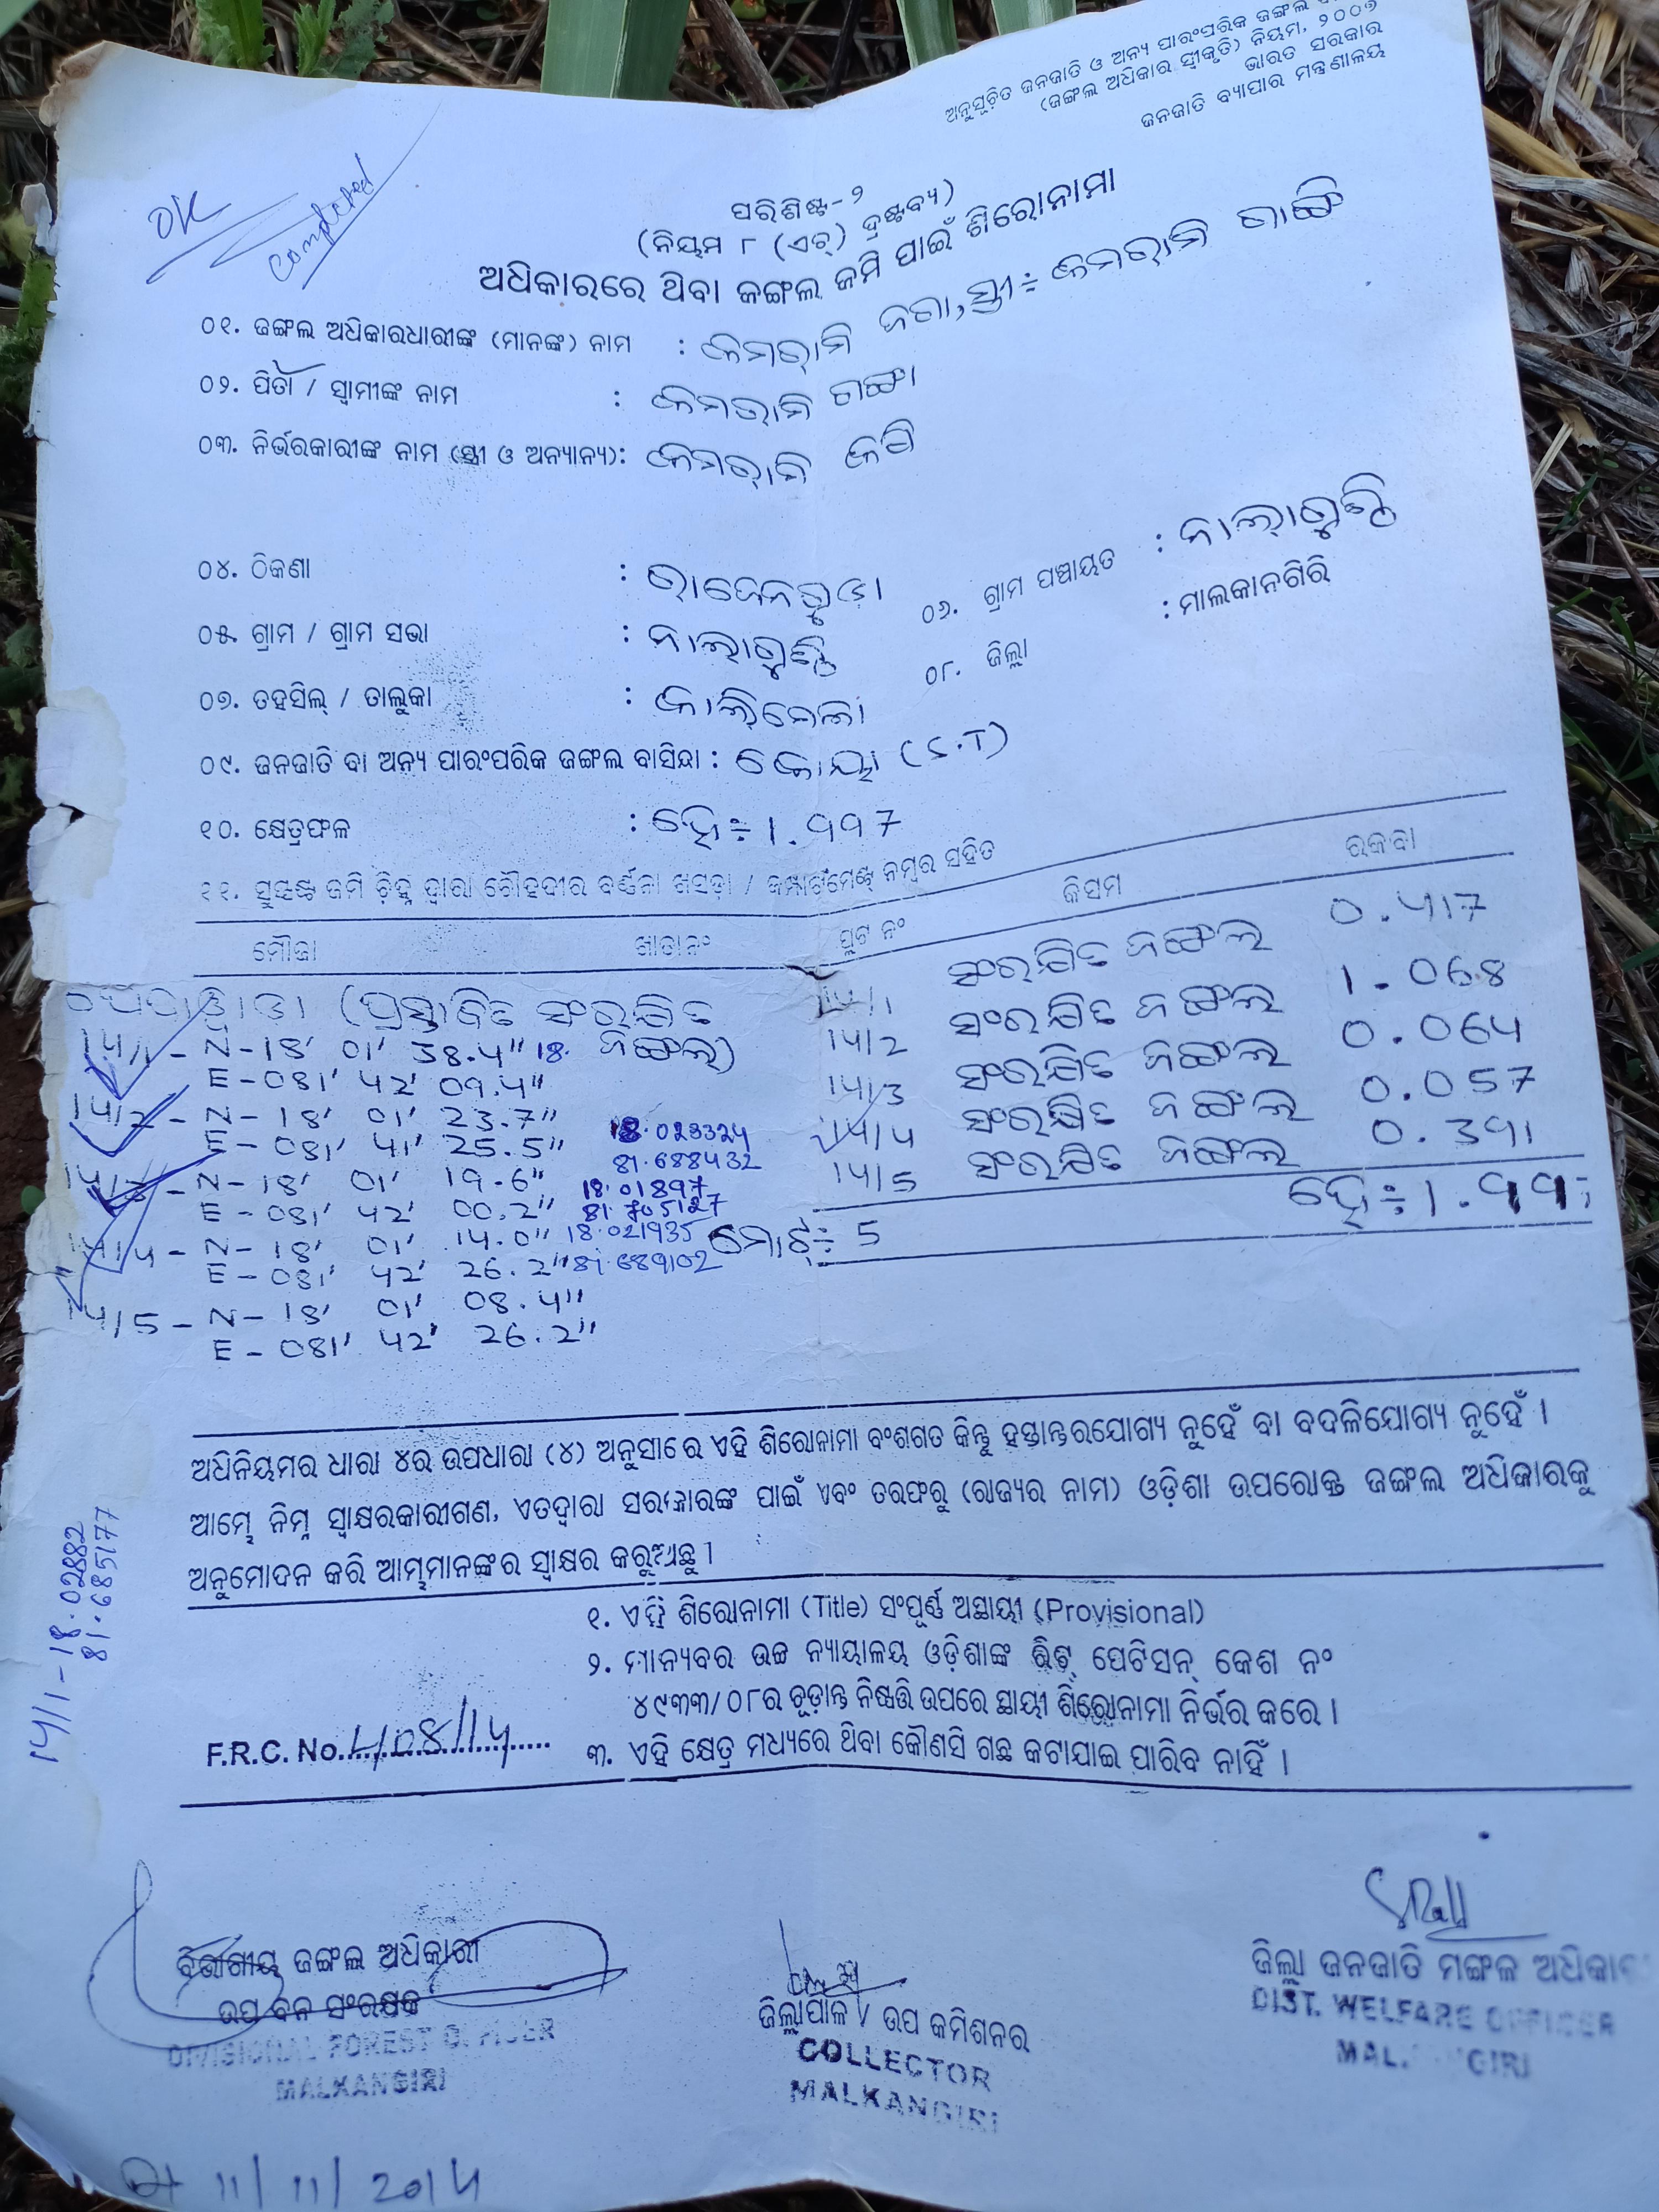 ଅନୁସୂଚିତ ଜନଜାତି ଓ ଅନ୍ୟ ପାରଂପରିକ ଜଙ୍ଗଲ
(ଜଙ୍ଗଲ ଅଧିକାର ସ୍ୱୀକୃତି) ନିୟମ, ୨୦୦୭
ଭାରତ ସରକାର
ଜନଜାତି ବ୍ୟାପାର ମନ୍ତ୍ରଣାଳୟ
OK
Completed
ପରିଶିଷ୍ଟ-୨
(ନିୟମ ୮ (ଏଚ୍) ଦ୍ରଷ୍ଟବ୍ୟ)
ଅଧିକାରରେ ଥିବା ଜଙ୍ଗଲ ଜମି ପାଇଁ ଶିରୋନାମା
୦୧. ଜଙ୍ଗଲ ଅଧିକାରଧାରୀଙ୍କ (ମାନଙ୍କ) ନାମ : କମରାମି ଜଗା, ସ୍ତ୍ରୀ÷ କମରାମି
୦୨. ପିତା / ସ୍ୱାମୀଙ୍କ ନାମ : କମରାମି ଗଙ୍ଗା
୦୩. ନିର୍ଭରକାରୀଙ୍କ ନାମ (ସ୍ତ୍ରୀ ଓ ଅନ୍ୟାନ୍ୟ): କମରାମି
୦୪. ଠିକଣା :
୦୫. ଗ୍ରାମ / ଗ୍ରାମ ସଭା : ନାଲାଗୁଣ୍ଠି ୦୬. ଗ୍ରାମ ପଞ୍ଚାୟତ : ନାଲାଗୁଣ୍ଠି
୦୭. ତହସିଲ୍ / ତାଲୁକା : କାଲିମେଲା ୦୮. ଜିଲ୍ଲା : ମାଲକାନଗିରି
୦୯. ଜନଜାତି ବା ଅନ୍ୟ ପାରଂପରିକ ଜଙ୍ଗଲ ବାସିନ୍ଦା : କୋୟା (S.T)
୧୦. କ୍ଷେତ୍ରଫଳ : ହେ÷ 1.997
୧୧. ସୁସ୍ପଷ୍ଟ ଜମି ଚିହ୍ନ ଦ୍ୱାରା ଚୌହଦୀର ବର୍ଣ୍ଣନା ଖସଡ଼ା / କମ୍ପାର୍ଟମେଣ୍ଟ୍ ନମ୍ବର ସହିତ
ମୌଜା ଖାତାନଂ ପ୍ଲଟ ନଂ କିସମ ରକବା
(ପ୍ରସ୍ତାବିତ ସଂରକ୍ଷିତ ଜଙ୍ଗଲ)
14/1 ସଂରକ୍ଷିତ ଜଙ୍ଗଲ 0.417
14/2 ସଂରକ୍ଷିତ ଜଙ୍ଗଲ 1.068
14/3 ସଂରକ୍ଷିତ ଜଙ୍ଗଲ 0.064
14/4 ସଂରକ୍ଷିତ ଜଙ୍ଗଲ 0.057
14/5 ସଂରକ୍ଷିତ ଜଙ୍ଗଲ 0.391
ମୋଟ÷ 5 ହେ÷ 1.997
14/1 - N - 18' 01' 38.4" 18.
E - 081' 42' 09.4"
14/2 - N - 18' 01' 23.7"
E - 081' 41' 25.5" 18.023324
81.688432
14/3 - N - 18' 01' 19.6" 18.01897
E - 081' 42' 00.2" 81.705127
14/4 - N - 18' 01' 14.0" 18.021935
E - 081' 42' 26.2" 81.689102
14/5 - N - 18' 01' 08.4"
E - 081' 42' 26.2"
14/1 - 18.02882
81.685177
ଅଧିନିୟମର ଧାରା ୪ର ଉପଧାରା (୪) ଅନୁସାରେ ଏହି ଶିରୋନାମା ବଂଶଗତ କିନ୍ତୁ ହସ୍ତାନ୍ତରଯୋଗ୍ୟ ନୁହେଁ ବା ବଦଳିଯୋଗ୍ୟ ନୁହେଁ ।
ଆମ୍ଭେ ନିମ୍ନ ସ୍ୱାକ୍ଷରକାରୀଗଣ, ଏତଦ୍ୱାରା ସରକାରଙ୍କ ପାଇଁ ଏବଂ ତରଫରୁ (ରାଜ୍ୟର ନାମ) ଓଡ଼ିଶା ଉପରୋକ୍ତ ଜଙ୍ଗଲ ଅଧିକାରକୁ
ଅନୁମୋଦନ କରି ଆମ୍ଭମାନଙ୍କର ସ୍ୱାକ୍ଷର କରୁଅଛୁ ।
୧. ଏହି ଶିରୋନାମା (Title) ସଂପୂର୍ଣ୍ଣ ଅସ୍ଥାୟୀ (Provisional)
୨. ମାନ୍ୟବର ଉଚ୍ଚ ନ୍ୟାୟାଳୟ ଓଡ଼ିଶାଙ୍କ ରିଟ୍ ପେଟିସନ୍ କେଶ ନଂ
୪୯୩୩/୦୮ର ଚୂଡ଼ାନ୍ତ ନିଷ୍ପତ୍ତି ଉପରେ ସ୍ଥାୟୀ ଶିରୋନାମା ନିର୍ଭର କରେ ।
F.R.C. No. 408/14
୩. ଏହି କ୍ଷେତ୍ର ମଧ୍ୟରେ ଥିବା କୌଣସି ଗଛ କଟାଯାଇ ପାରିବ ନାହିଁ ।
ବିଭାଗୀୟ ଜଙ୍ଗଲ ଅଧିକାରୀ
ଉପ ବନ ସଂରକ୍ଷକ
DIVISIONAL FOREST OFFICER
MALKANGIRI
ଜିଲ୍ଲାପାଳ / ଉପ କମିଶନର
COLLECTOR
MALKANGIRI
ଜିଲ୍ଲା ଜନଜାତି ମଙ୍ଗଳ ଅଧିକାରୀ
DIST. WELFARE OFFICER
MALKANGIRI
11/11/2014